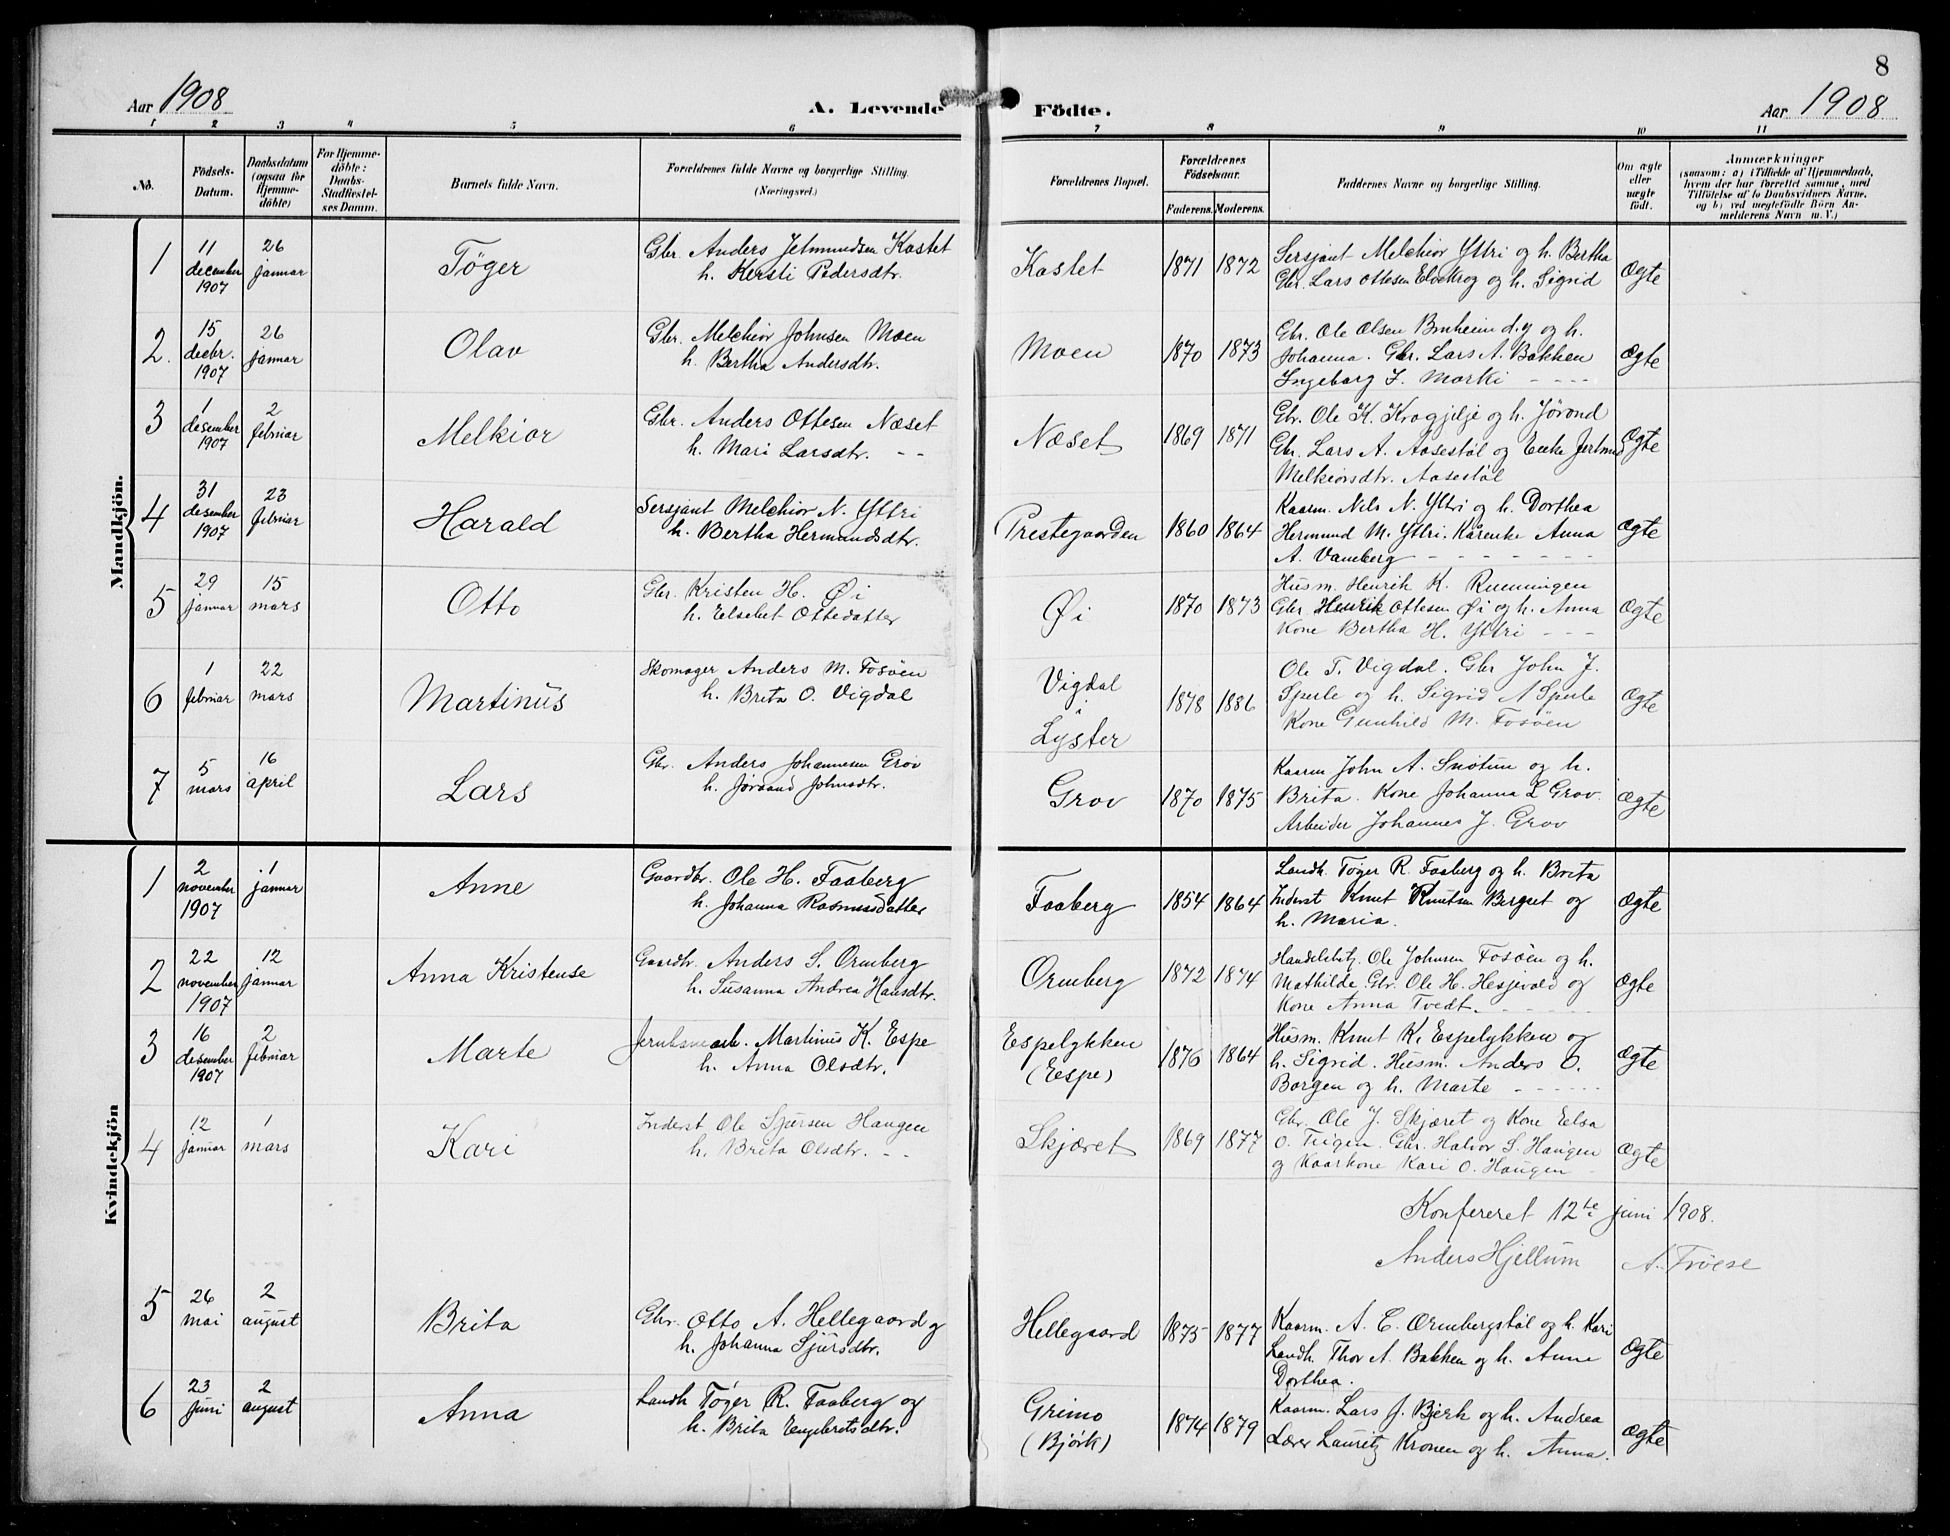 8
Aar 1908
A. Levende Födte.
Aar 1908
1 2 3 4 5 6 7 8 9 10 11
No.
Födsels-
Datum.
Daabsdatum
(ogsaa for
Hjemme-
döbte)
For Hjemme-
döbte:
Daabs-
Stadfæstel-
ses Datum.
Barnets fulde Navn.
Forældrenes fulde Navne og borgerlige Stilling.
(Næringsvei.)
Forældrenes Bopæl.
Forældrenes
Födselsaar.
Faderens. Moderens.
Faddernes Navne og borgerlige Stilling.
Om ægte
eller
uægte
födt.
Anmærkninger
(saasom: a) i Tilfælde af Hjemmedaab,
hvem der har forrettet samme, med
Tilföielse af to Daabsvidners Navne,
og b) ved uægtefödte Börn An-
melderens Navn m. V.)
Mandkjön.
1
11
december
1907
26
januar
Tøger
Gbr. Anders Jetmundsen Kastet
h. Kersti Pedersdtr.
Kastet
1871 1872
Sersjant Melchior Yttri og h. Bertha
Gbr. Lars Ottesen Elvekrog og h. Sigrid
Ægte
2.
15
decbr.
1907
26
januar
Olav
Gbr. Melchior Johnsen Moen
h. Bertha Andersdtr.
Moen
1870 1873
Gbr. Ole Olsen Bruheim d.y og h.
Johanna. Gbr. Lars A. Bakken
Ingeborg J. Morki - - - -
Ægte
3
1
desember
1907
2
februar
Melkior
Gbr. Anders Ottesen Næset
h. Mari Larsdtr. - -
Næset
1869 1871
Gbr. Ole K. Krogjelje og h. Jørond
Gbr. Lars A. Aasestøl og Enke Jertrud
Melkiorsdtr. Aasestøl
Ægte
4
31
desember
1907
23
februar
Harald
Sersjant Melchior N. Yttri
h. Bertha Hermundsdtr.
Prestegaarden
1860 1864
Kaarm. Nils N. Yttri og h. Dorthea
Hermund M. Yttri. Kårenke Anna
A. Vamberg - - - - - - -
Ægte
5
29
januar
15
mars
Otto
Gbr. Kristen H. Øi
h. Elsebet Ottedatter
Øi
1870 1873
Husm. Henrik K. Runningen
Gbr. Henrik Ottesen Øi og h. Anna
Kone Bertha H. Yttri - - -
Ægte
6
1
februar
22
mars
Martinus
Skomager Anders M. Fosøen
h. Brita O. Vigdal
Vigdal
i
Lyster
1878 1886
Ole T. Vigdal. Gbr John J.
Sperle og h. Sigrid A Sperle
Kone Gunhild M. Fosøen
Ægte
7
5
mars
16
april
Lars
Gbr. Anders Johannesen Grov
h. Jøraand Johnsdtr.
Grov
1870 1875
Kaarm John A. Snøtun og h.
Brita. Kone Johanna L Grov.
Arbeider Johannes J. Grov
Ægte
Kvindekjön
1
2
november
1907
1
januar
Anne
Gaardbr. Ole H. Faaberg
h. Johanna Rasmusdatter
Faaberg
1854 1864
Landh. Tøger R. Faaberg og h. Brita
Inderst Knut Knutsen Bergset og
h. Maria.
Ægte
2
22
november
1907
12
januar
Anna Kristense
Gaardbr. Anders S. Ormberg
h. Susanna Andrea Hansdtr.
Ormberg
1872 1874
Handelsbetj. Ole Johnsen Fosøen og h.
Mathilde. Gbr. Ole H. Hesjevold og
Kone Anna Tvedt - - - -
Ægte
3
16
desember
1907
2
februar
Marte
Jernbanearb. Martinus K. Espe
h. Anna Olsdtr.
Espelykken
(Espe)
1876 1864
Husm. Knut K. Espelykken og
h. Sigrid. Husm. Anders O.
Borgen og h. Marte - - - - -
Ægte
4
12
januar
1
mars
Kari
Inderst Ole Sjursen Haugen
h. Brita Olsdtr. - -
Skjæret
1869 1877
Gbr. Ole J. Skjæret og Kone Elsa
O. Teigen. Gbr. Halvor S. Haugen
og Kaarkone Kari O. Haugen -
Ægte
Konfereret 12te juni 1908.
Anders Hjellum A. Trøese
5
26
mai
2
august
Brita
Gbr. Otto A. Hellegaard og
h. Johanna Sjursdtr.
Hellegaard
1875 1877
Kaarm. A. E. Ormbergstøl og h. Kari
Landh. Thor A. Bakken og h. Anne
Dorthea.
Ægte
6
23
juni
2
august
Anna
Landh Tøger R. Faaberg og
h. Brita Engebretsdtr.
Grimo
(Bjørk)
1874 1879
Kaarm. Lars J. Bjerk og h. Andrea
Lærer Lauritz Kronen og h. Anna.
Ægte